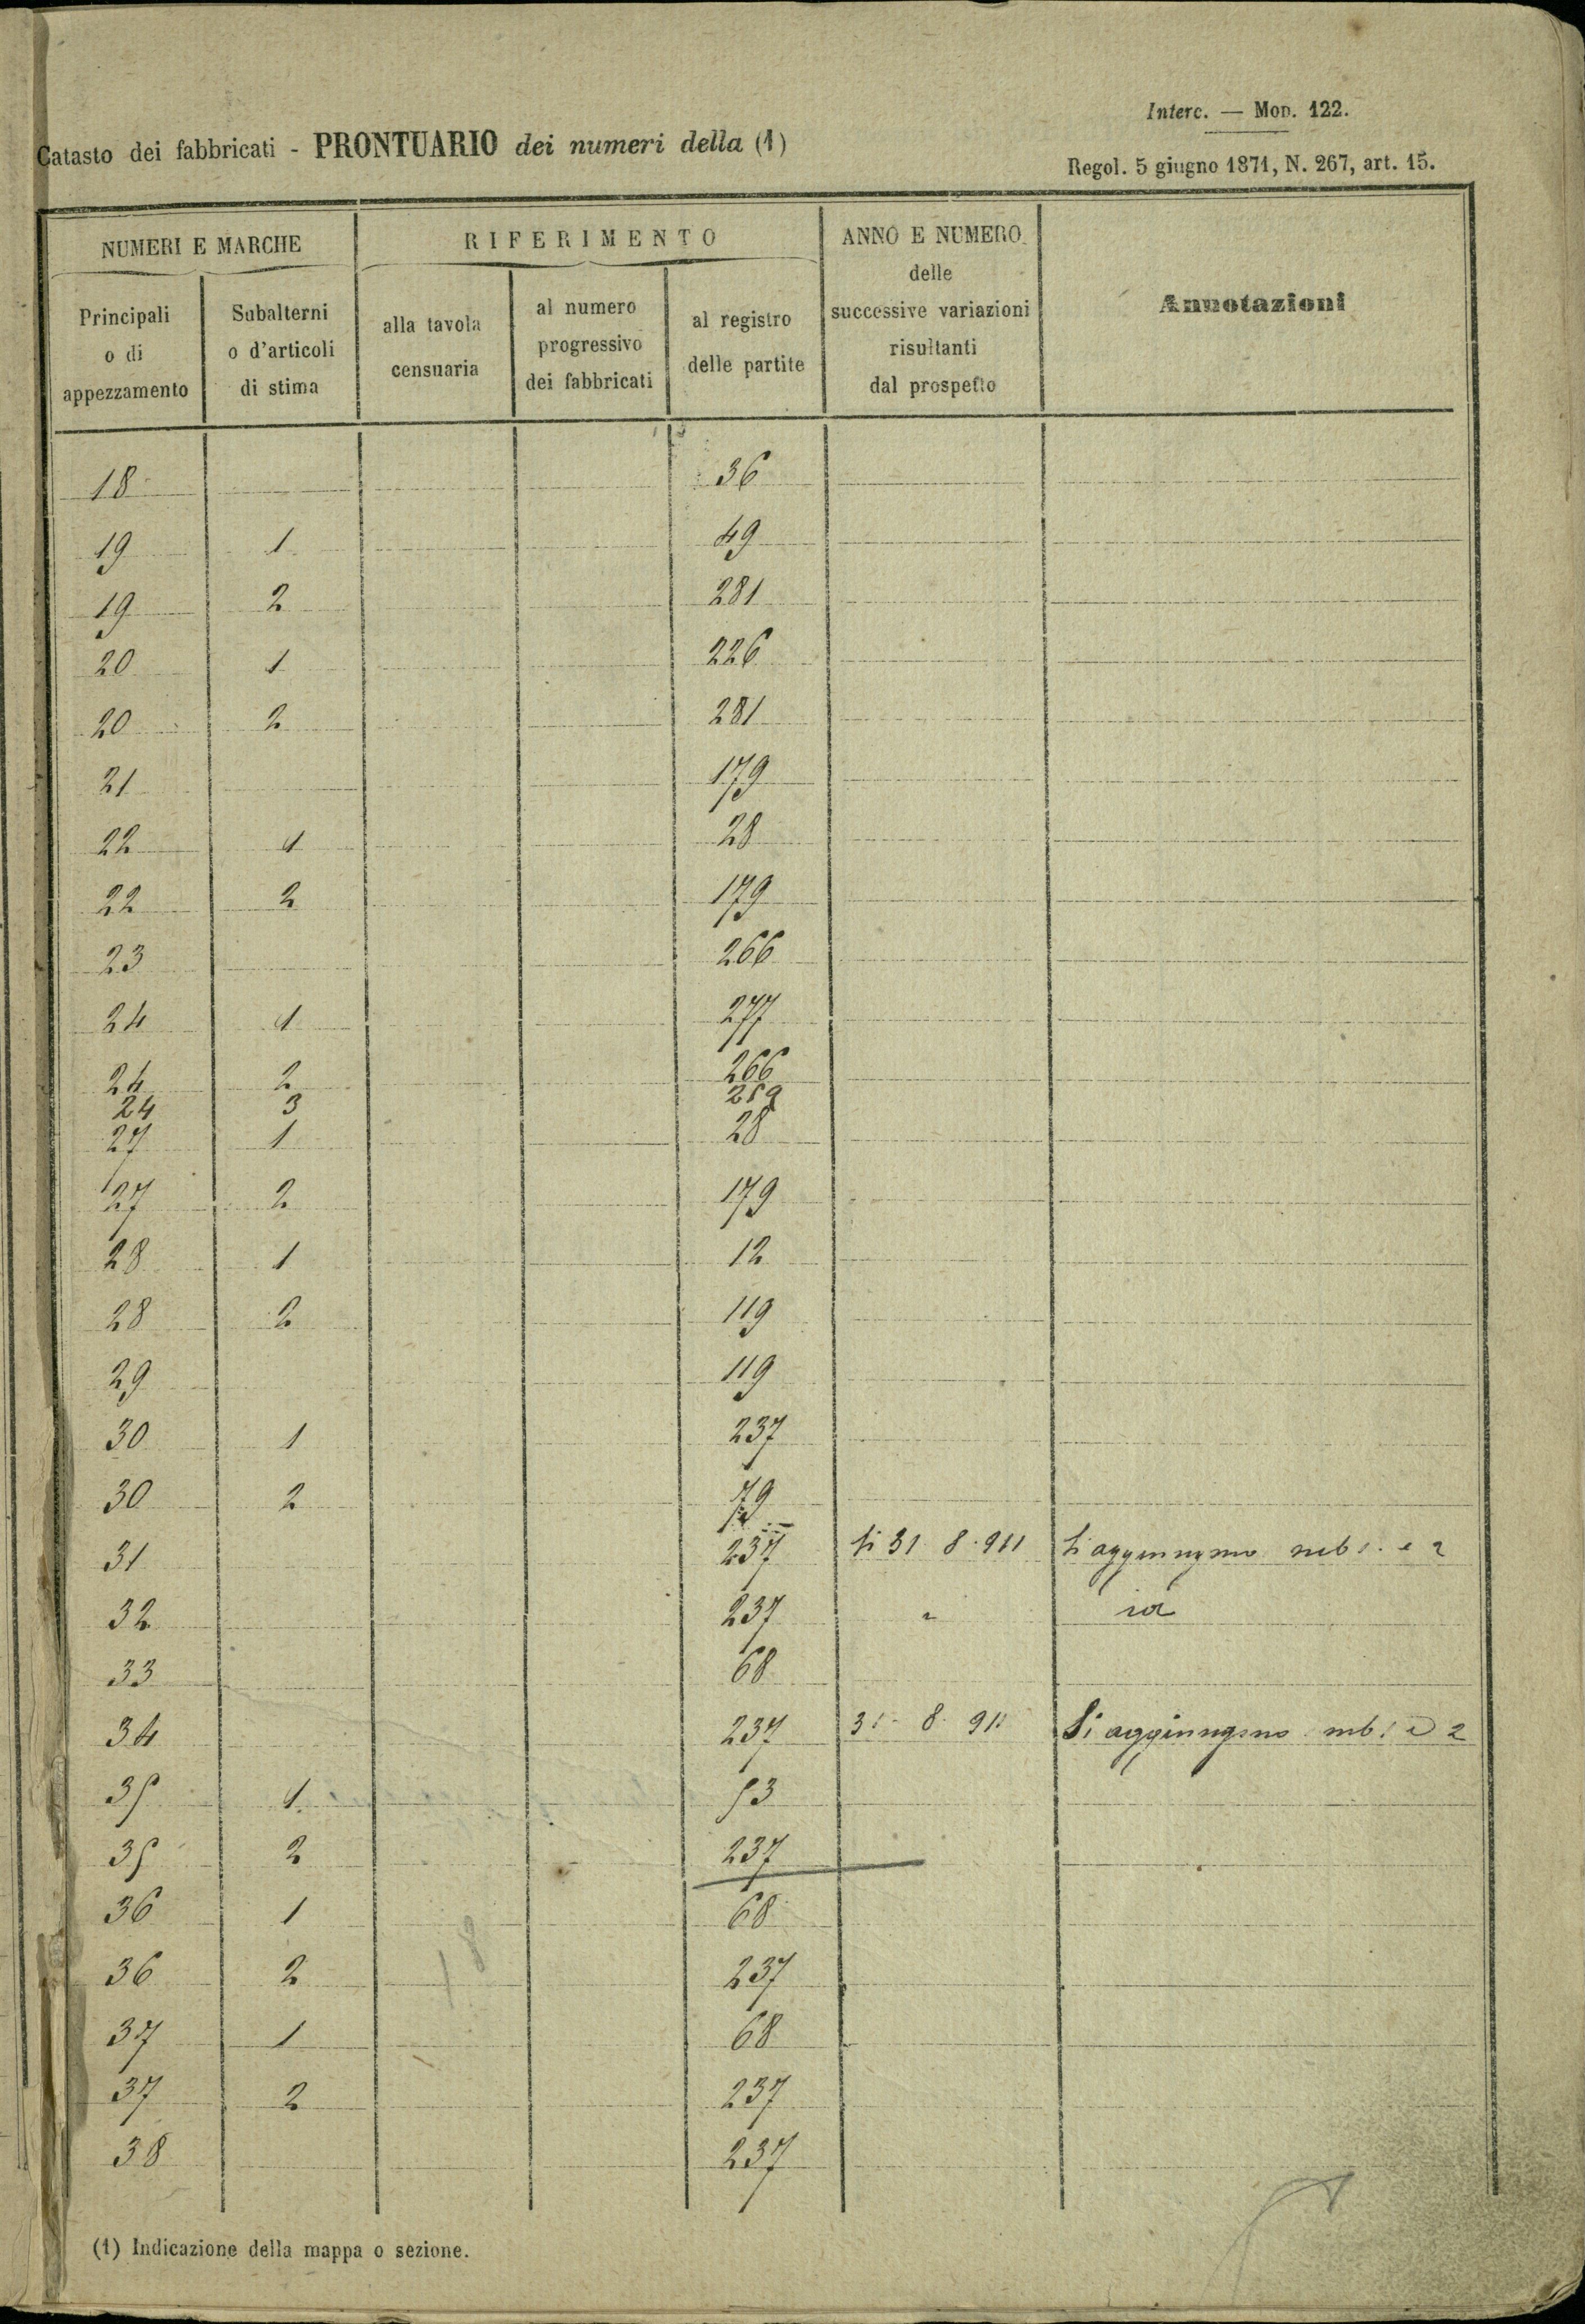 Interc. — Mod. 122.
Catasto dei fabbricati - PRONTUARIO dei numeri della (1)
Regol. 5 giugno 1871, N. 267, art. 15.
NUMERI E MARCHE
RIFERIMENTO
ANNO E NUMERO
delle
successive variazioni
risultanti
dal prospetto
Annotazioni
Principali
o di
appezzamento
Subalterni
o d'articoli
di stima
alla tavola
censuaria
al numero
progressivo
dei fabbricati
al registro
delle partite
18 36
19 1 49
19 2 281
20 1 226
20 2 281
21 179
22 1 28
22 2 179
23 266
24 1 277
24 2 266
24 3 259
27 1 28
27 2 179
28 1 12
28 2 119
29 119
30 1 237
30 2 79
31 237 li 31 8 911 Si aggiungono sub 1 e 2
32 237 " id
33 68
34 237 31 8 911 Si aggiungono sub 1 e 2
35 1 53
35 2 237
36 1 68
36 2 237
37 1 68
37 2 237
38 237
(1) Indicazione della mappa o sezione.